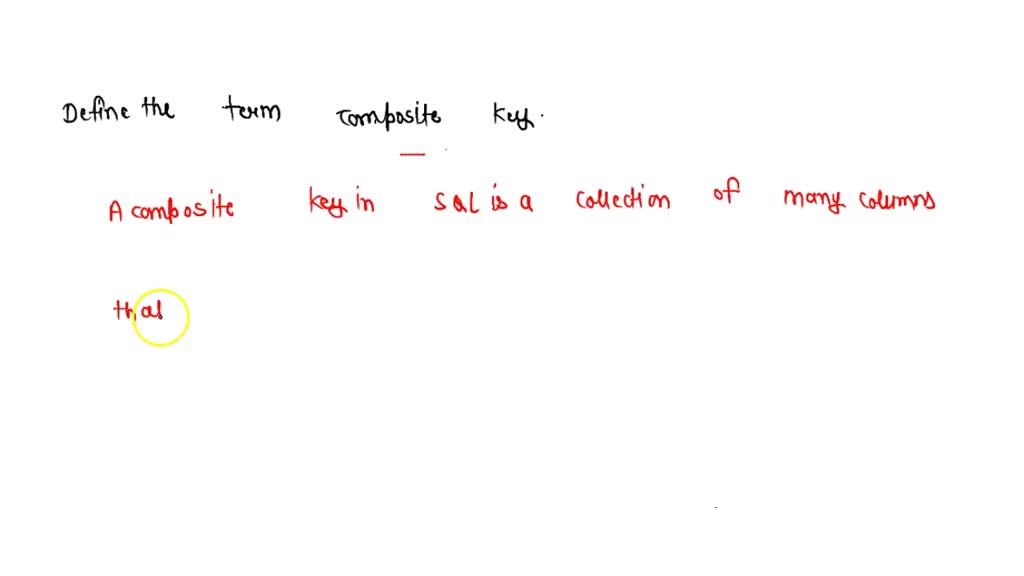 Define the term composite key.
A composite key in SQL is a collection of many columns
that